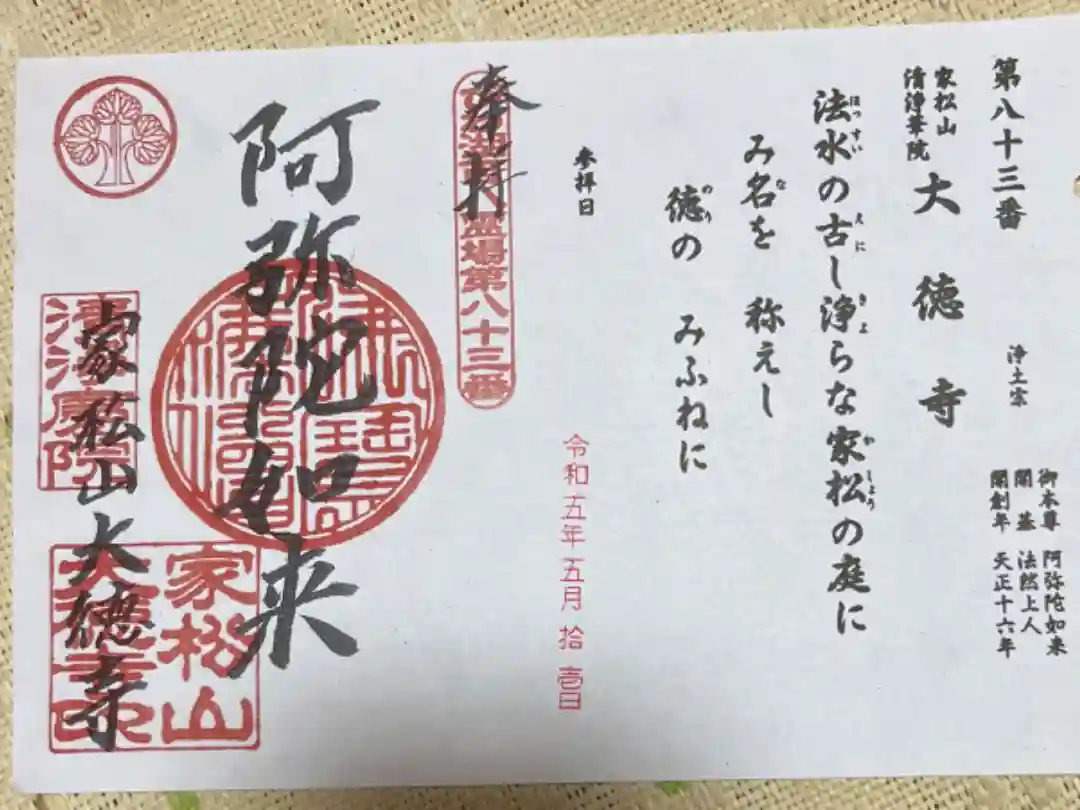 第八十三番
家松山
清浄華院
大徳寺
浄土宗
御本尊 阿弥陀如来
開基 法然上人
開創年 天正十六年
法水の古し浄らな家松の庭に
ほっすい えに きよ かしょう
み名を 称えし
な
徳の みふねに
のり
参拝日
令和五年五月拾壱日
奉拝
霊場第八十三番
阿弥陀如来
家松山大徳寺
家松山